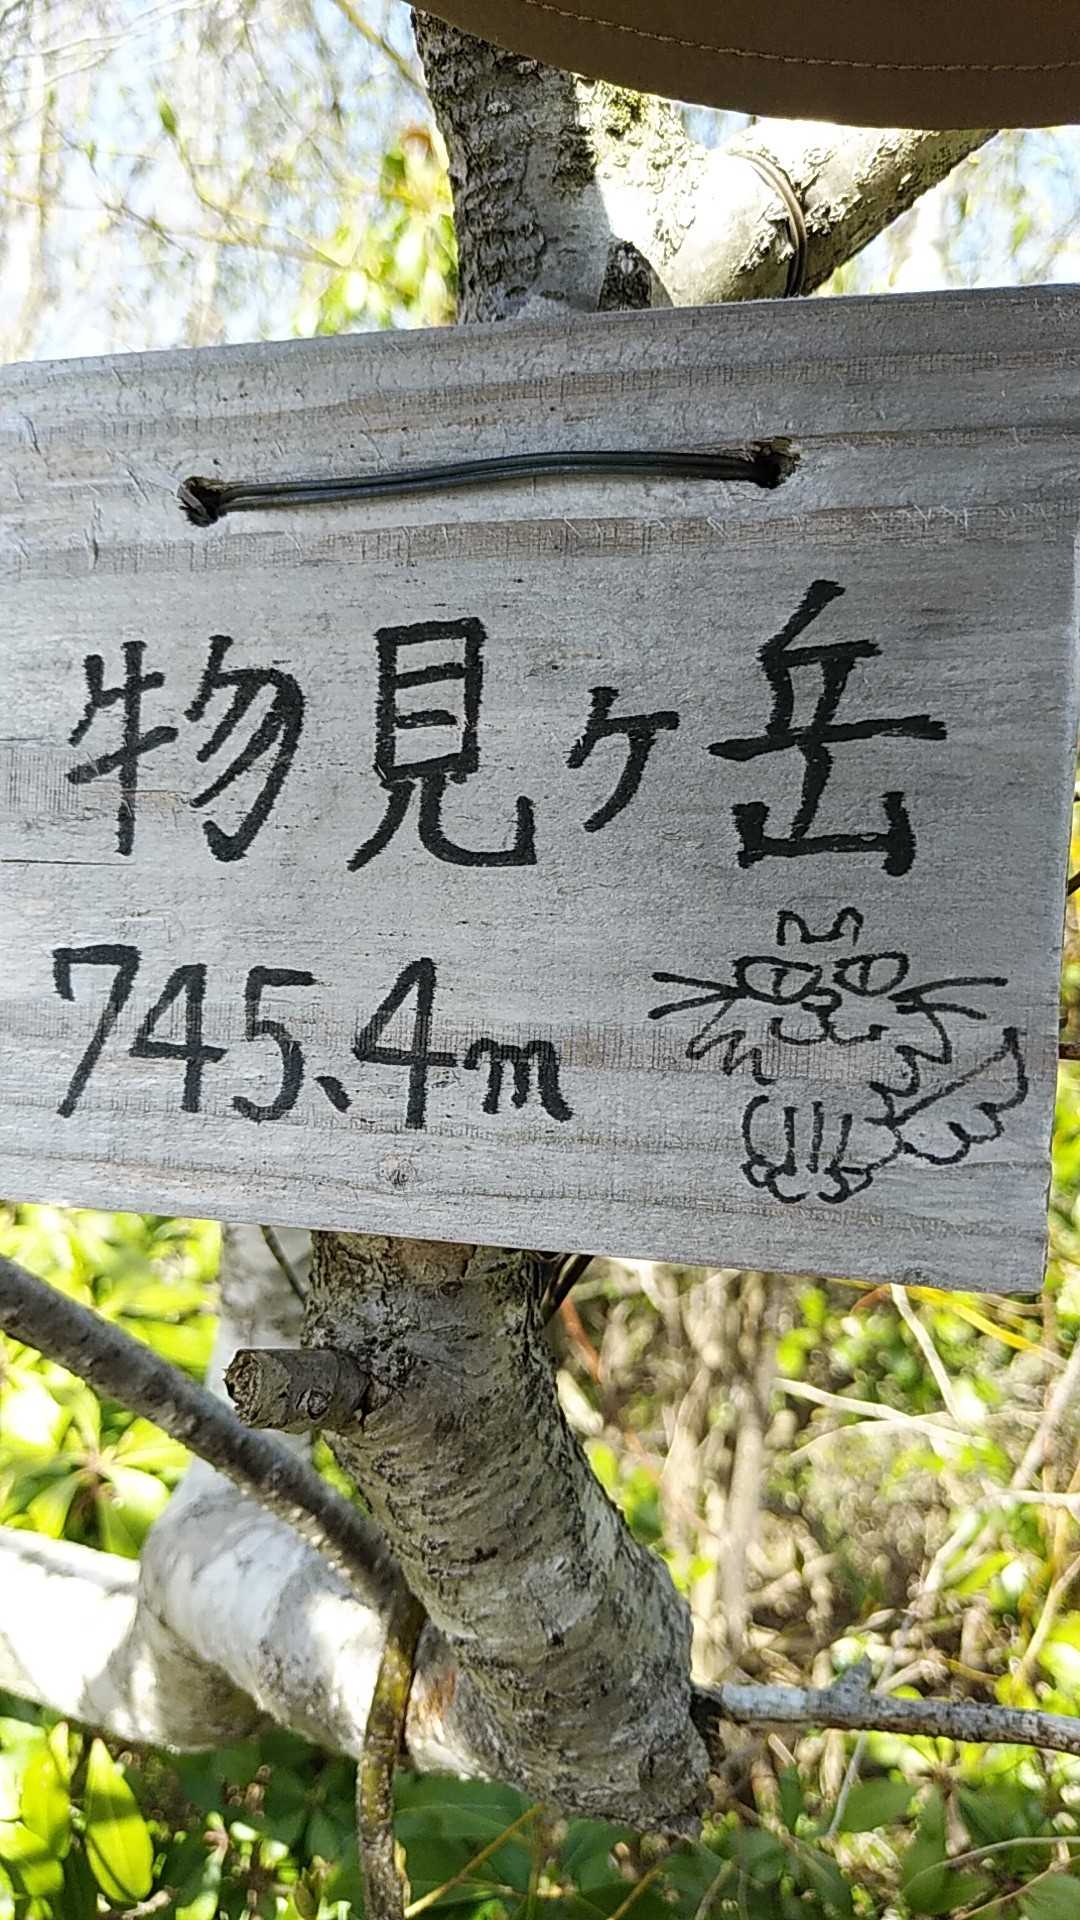 物見ヶ岳
745.4m